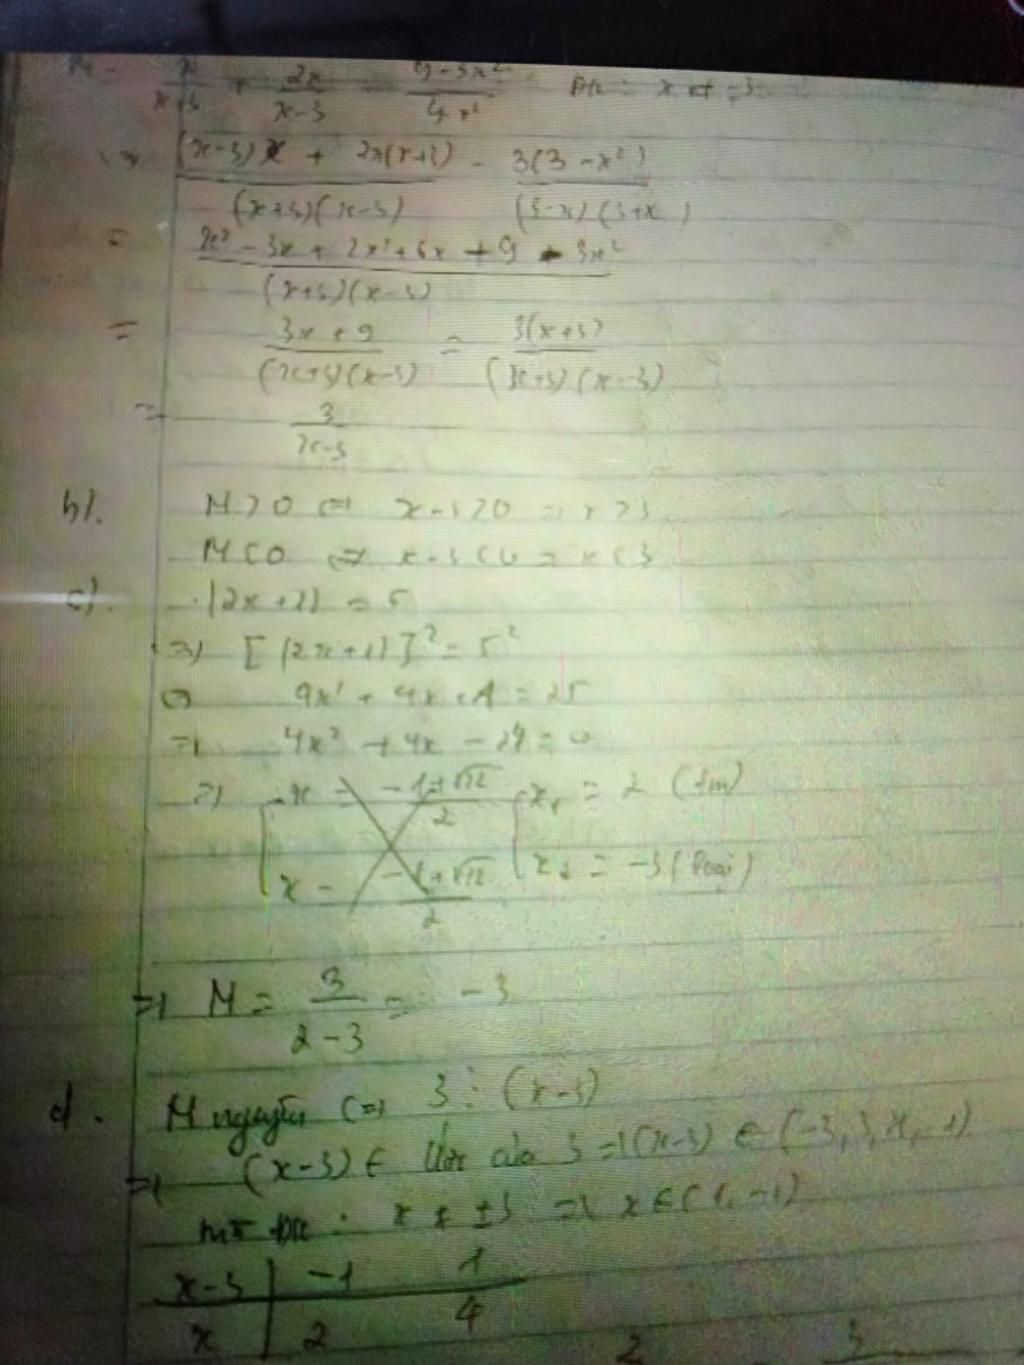 x/(x+3) + 2x/(x-3) - (9-3x²)/ ĐK: x ≠ ±3
=> ((x-3)x + 2x(x+3))/((x+3)(x-3)) - 3(3-x²)/((3-x)(3+x))
= (x² - 3x + 2x² + 6x + 9 - 3x²)/((x+3)(x-3))
= (3x+9)/((x+3)(x-3)) = 3(x+3)/((x+3)(x-3))
= 3/(x-3)
b). M>0 <=> x-3>0 => x>3
M<0 <=> x-3<0 = x<3
c). |2x+1| = 5
=> [|2x+1|]² = 5²
4x² + 4x + 1 = 25
=> 4x² + 4x - 24 = 0
=> x₁ = 2 (tm)
x₂ = -3 (loại)
=> M = 3/(2-3) = -3
d. M nguyên <=> 3 ⋮ (x-3)
=> (x-3) ∈ Ước của 3 => (x-3) ∈ (-3, 3, 1, -1)
x ≠ ±3 => x ∈ (1, -1)
x-3 | -1 1
x | 2 4
2 3